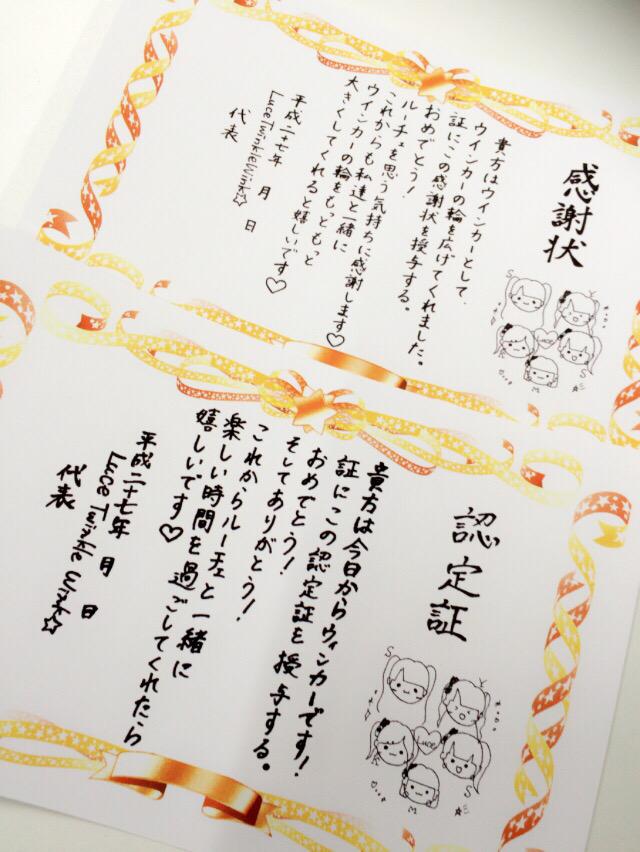 感謝状
貴方はウインカーとして、
ウインカーの輪を広げてくれました。
証にこの感謝状を授与する。
おめでとう！
ルーチェを思う気持ちに感謝します♡
これからも私達と一緒に
ウインカーの輪をもっともっと
大きくしてくれると嬉しいです♡
平成二十七年 月 日
Luce Twinkle Wink☆
代表
S
Y
Luce
S
M
認定証
貴方は今日からウィンカーです！
証にこの認定証を授与する。
おめでとう！
そしてありがとう！
これからルーチェと一緒に
楽しい時間を過ごしてくれたら
嬉しいです♡
平成二十七年 月 日
Luce Twinkle Wink☆
代表
S
Y
Luce
S
M